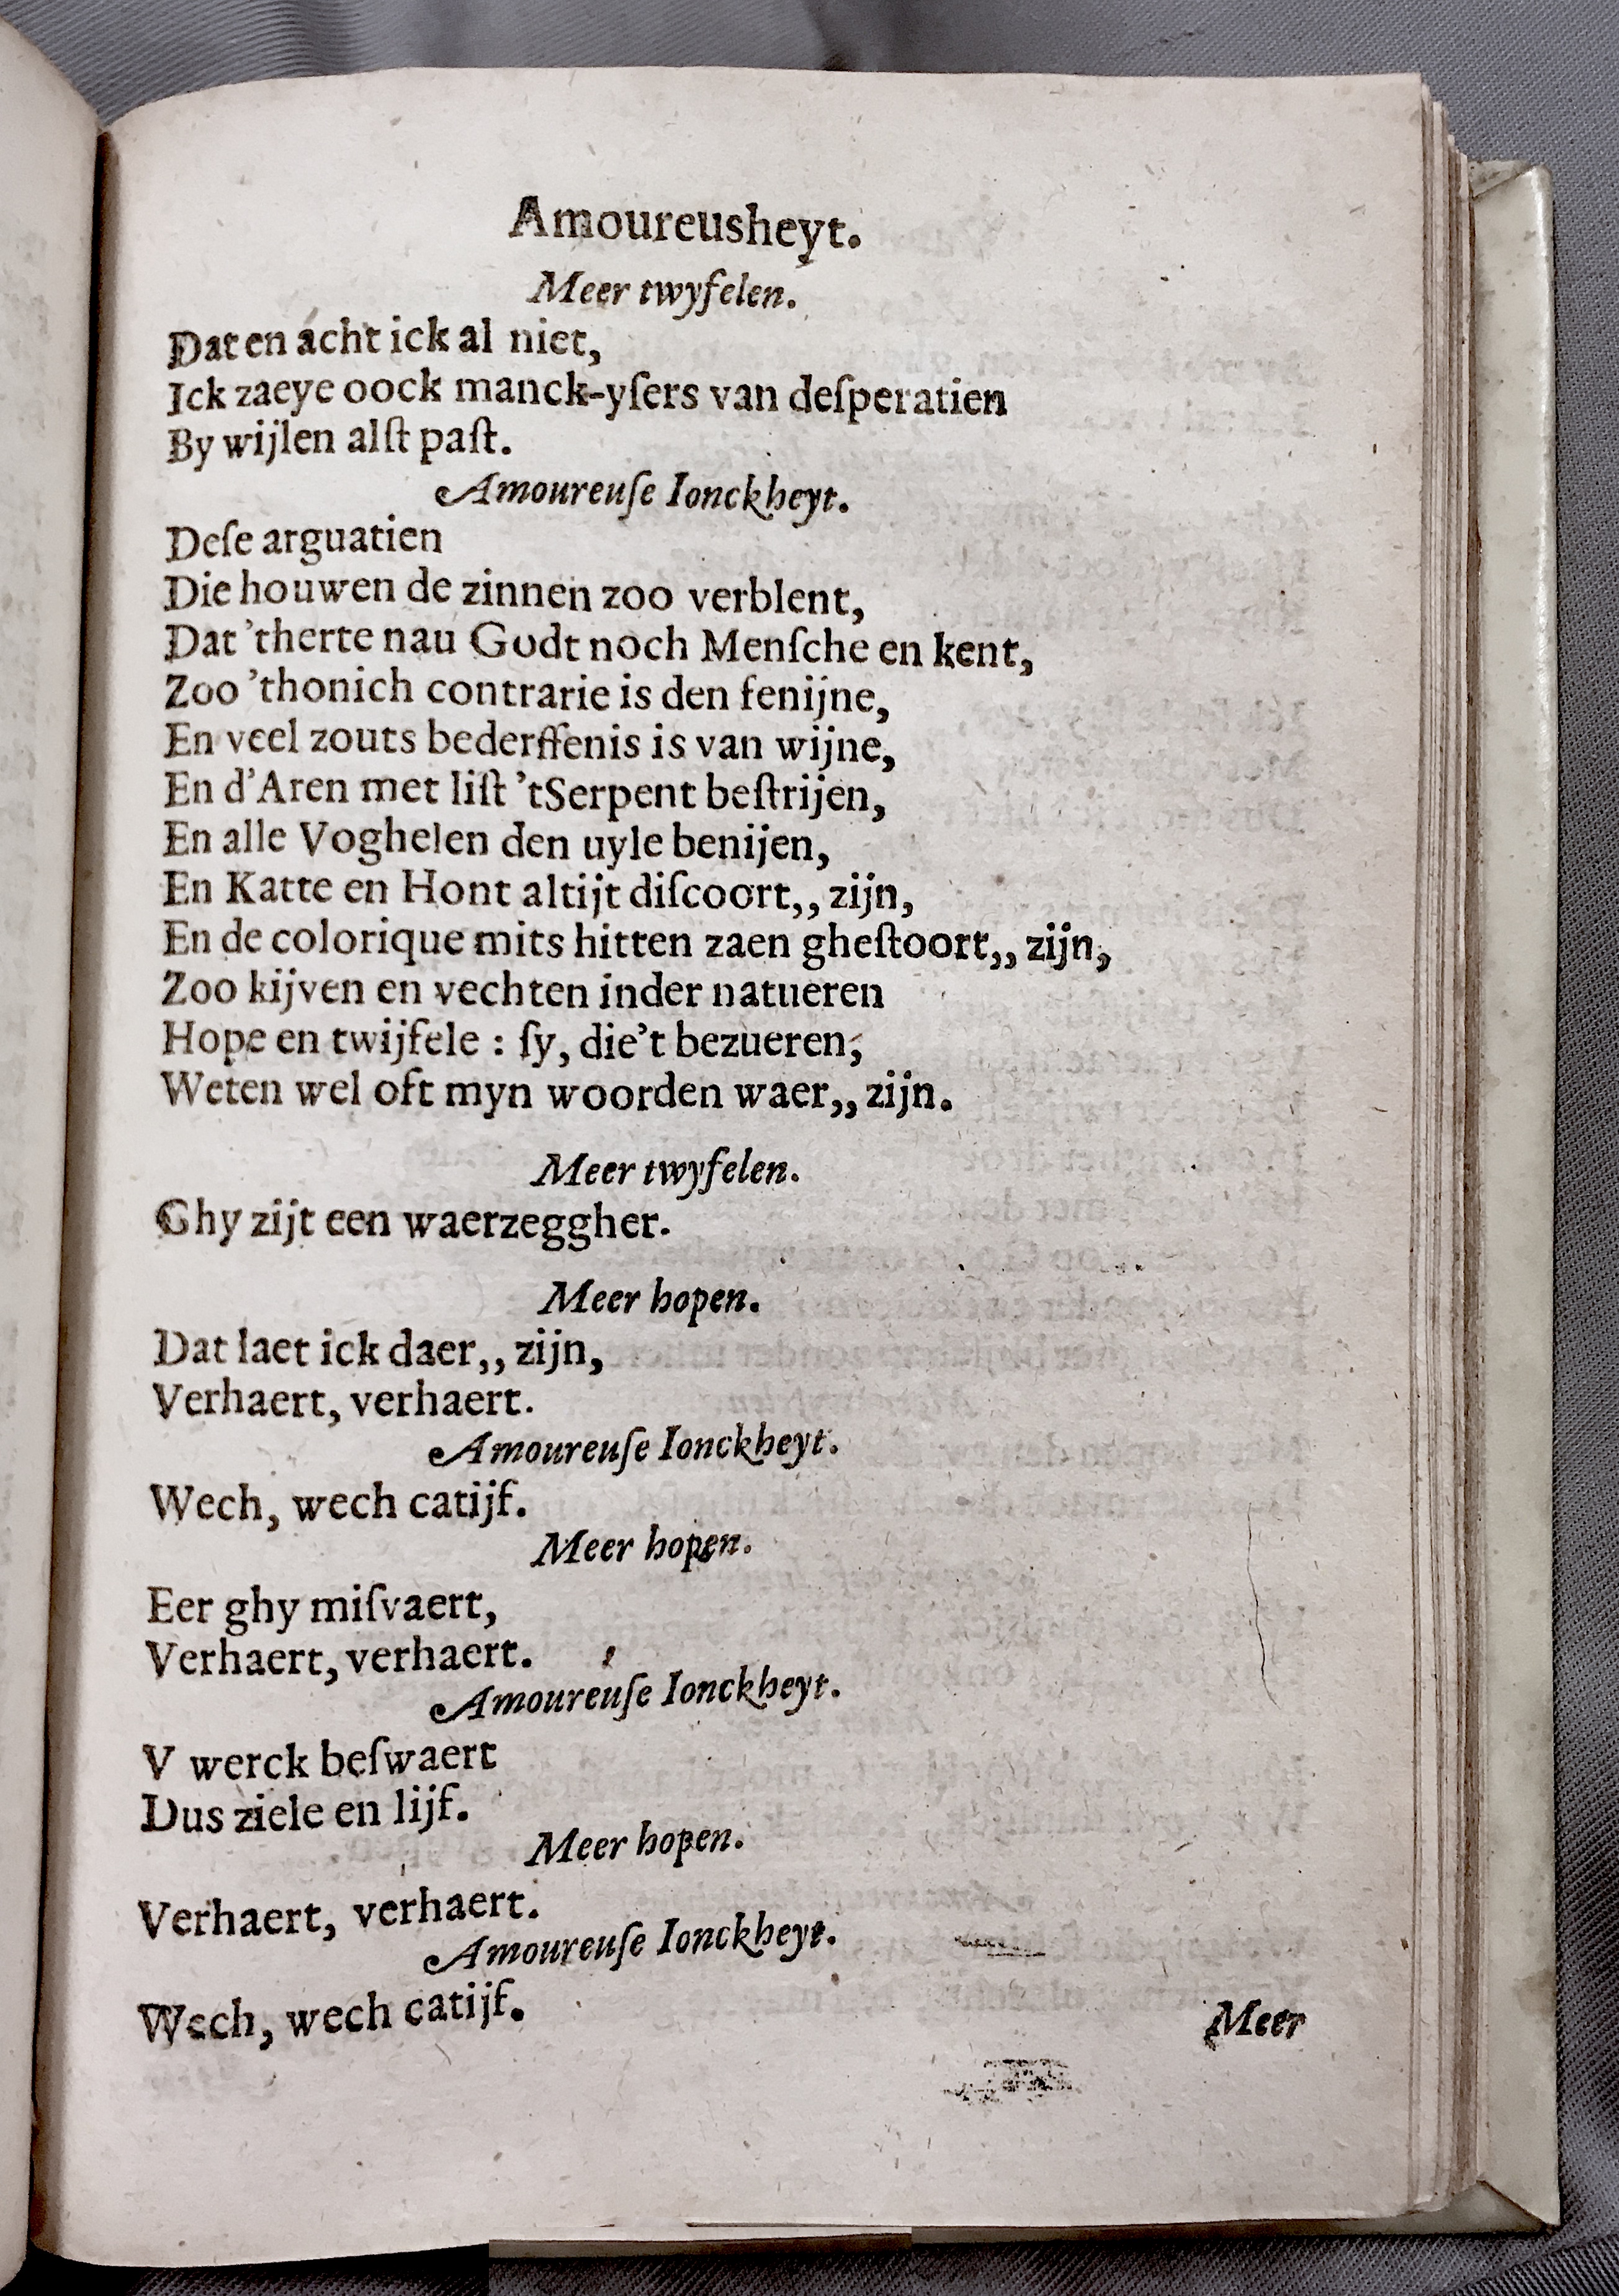 Amoureusheyt.
Meer twyfelen.
Dat en acht ick al niet,
Ick zaeye oock manck-yſers van deſperatien
By wijlen alſt paſt.
Amoureuſe Ionckheyt.
Deſe arguatien
Die houwen de zinnen zoo verblent,
Dat 'therte nau Godt noch Menſche en kent,
Zoo 'thonich contrarie is den fenijne,
En veel zouts bederffenis is van wijne,
En d'Aren met liſt 'tSerpent beſtrijen,
En alle Voghelen den uyle benijen,
En Katte en Hont altijt diſcoort,, zijn,
En de colorique mits hitten zaen gheſtoort,, zijn,
Zoo kijven en vechten inder natueren
Hope en twijfele : ſy, die't bezueren,
Weten wel oft myn woorden waer,, zijn.
Meer twyfelen.
Ghy zijt een waerzeggher.
Meer hopen.
Dat laet ick daer,, zijn,
Verhaert, verhaert.
Amoureuſe Ionckheyt.
Wech, wech catijf.
Meer hopen.
Eer ghy miſvaert,
Verhaert, verhaert.
Amoureuſe Ionckheyt.
V werck beſwaert
Dus ziele en lijf.
Meer hopen.
Verhaert, verhaert.
Amoureuſe Ionckheyt.
Wech, wech catijf.
Meer